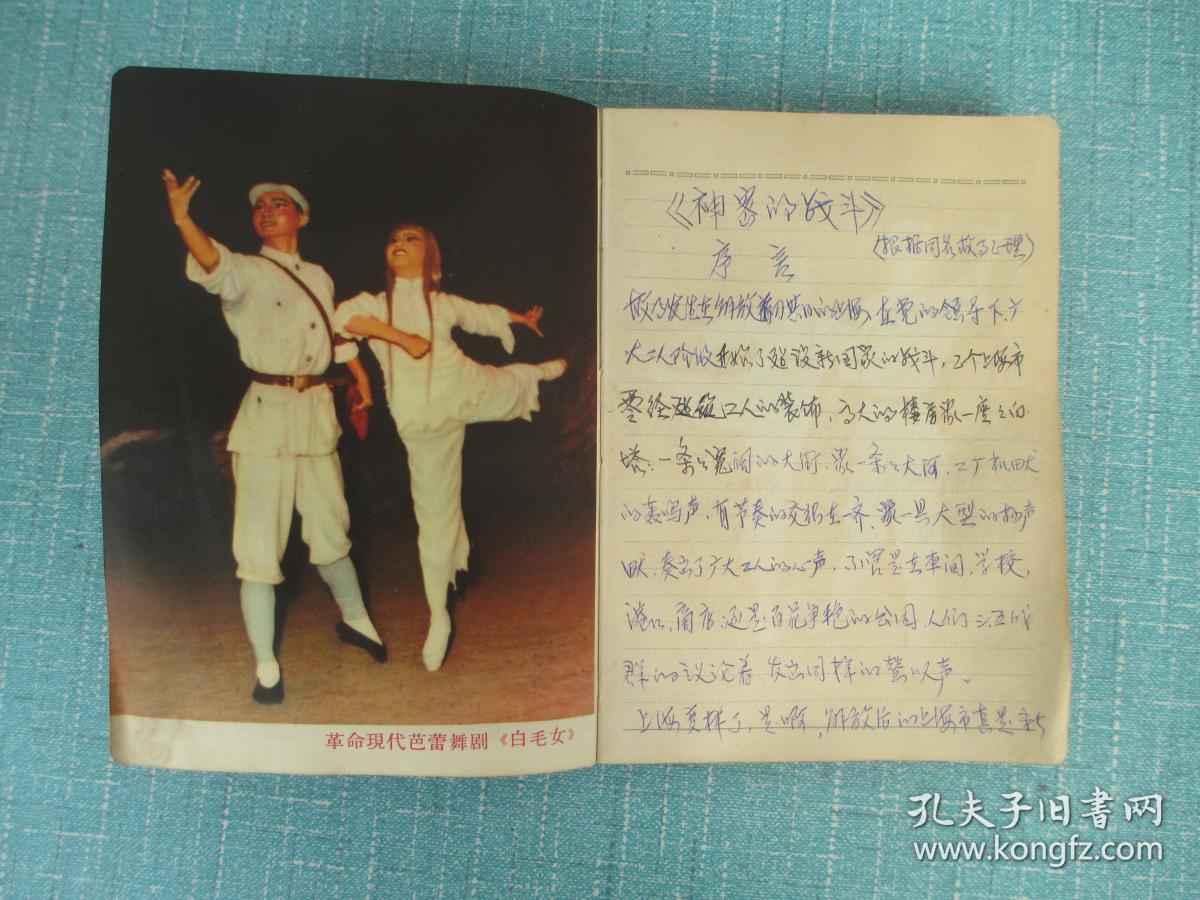 革命現代芭蕾舞剧《白毛女》
《神密的战斗》
序言
(根据同名故事正理)
故事发生在解放初期的上海,在党的领导下,广
大工人阶级开始了建设新国家的战斗,工个上海市
要经工人的装饰,高大的楼房象一座之白
塔:一条之宽阔的大街,象一条之大河,工厂机器
的轰鸣声,有节奏的交织在一齐,象一具大型的扬声
器,奏出了广大工人的心声,不管是在车间,学校,
港口,商店,还是百花争艳的公园,人们三五成
群的议论着,发出同样的声。
上海变样了,是啊,解放后的上海市真是新
孔夫子旧书网
www.kongfz.com